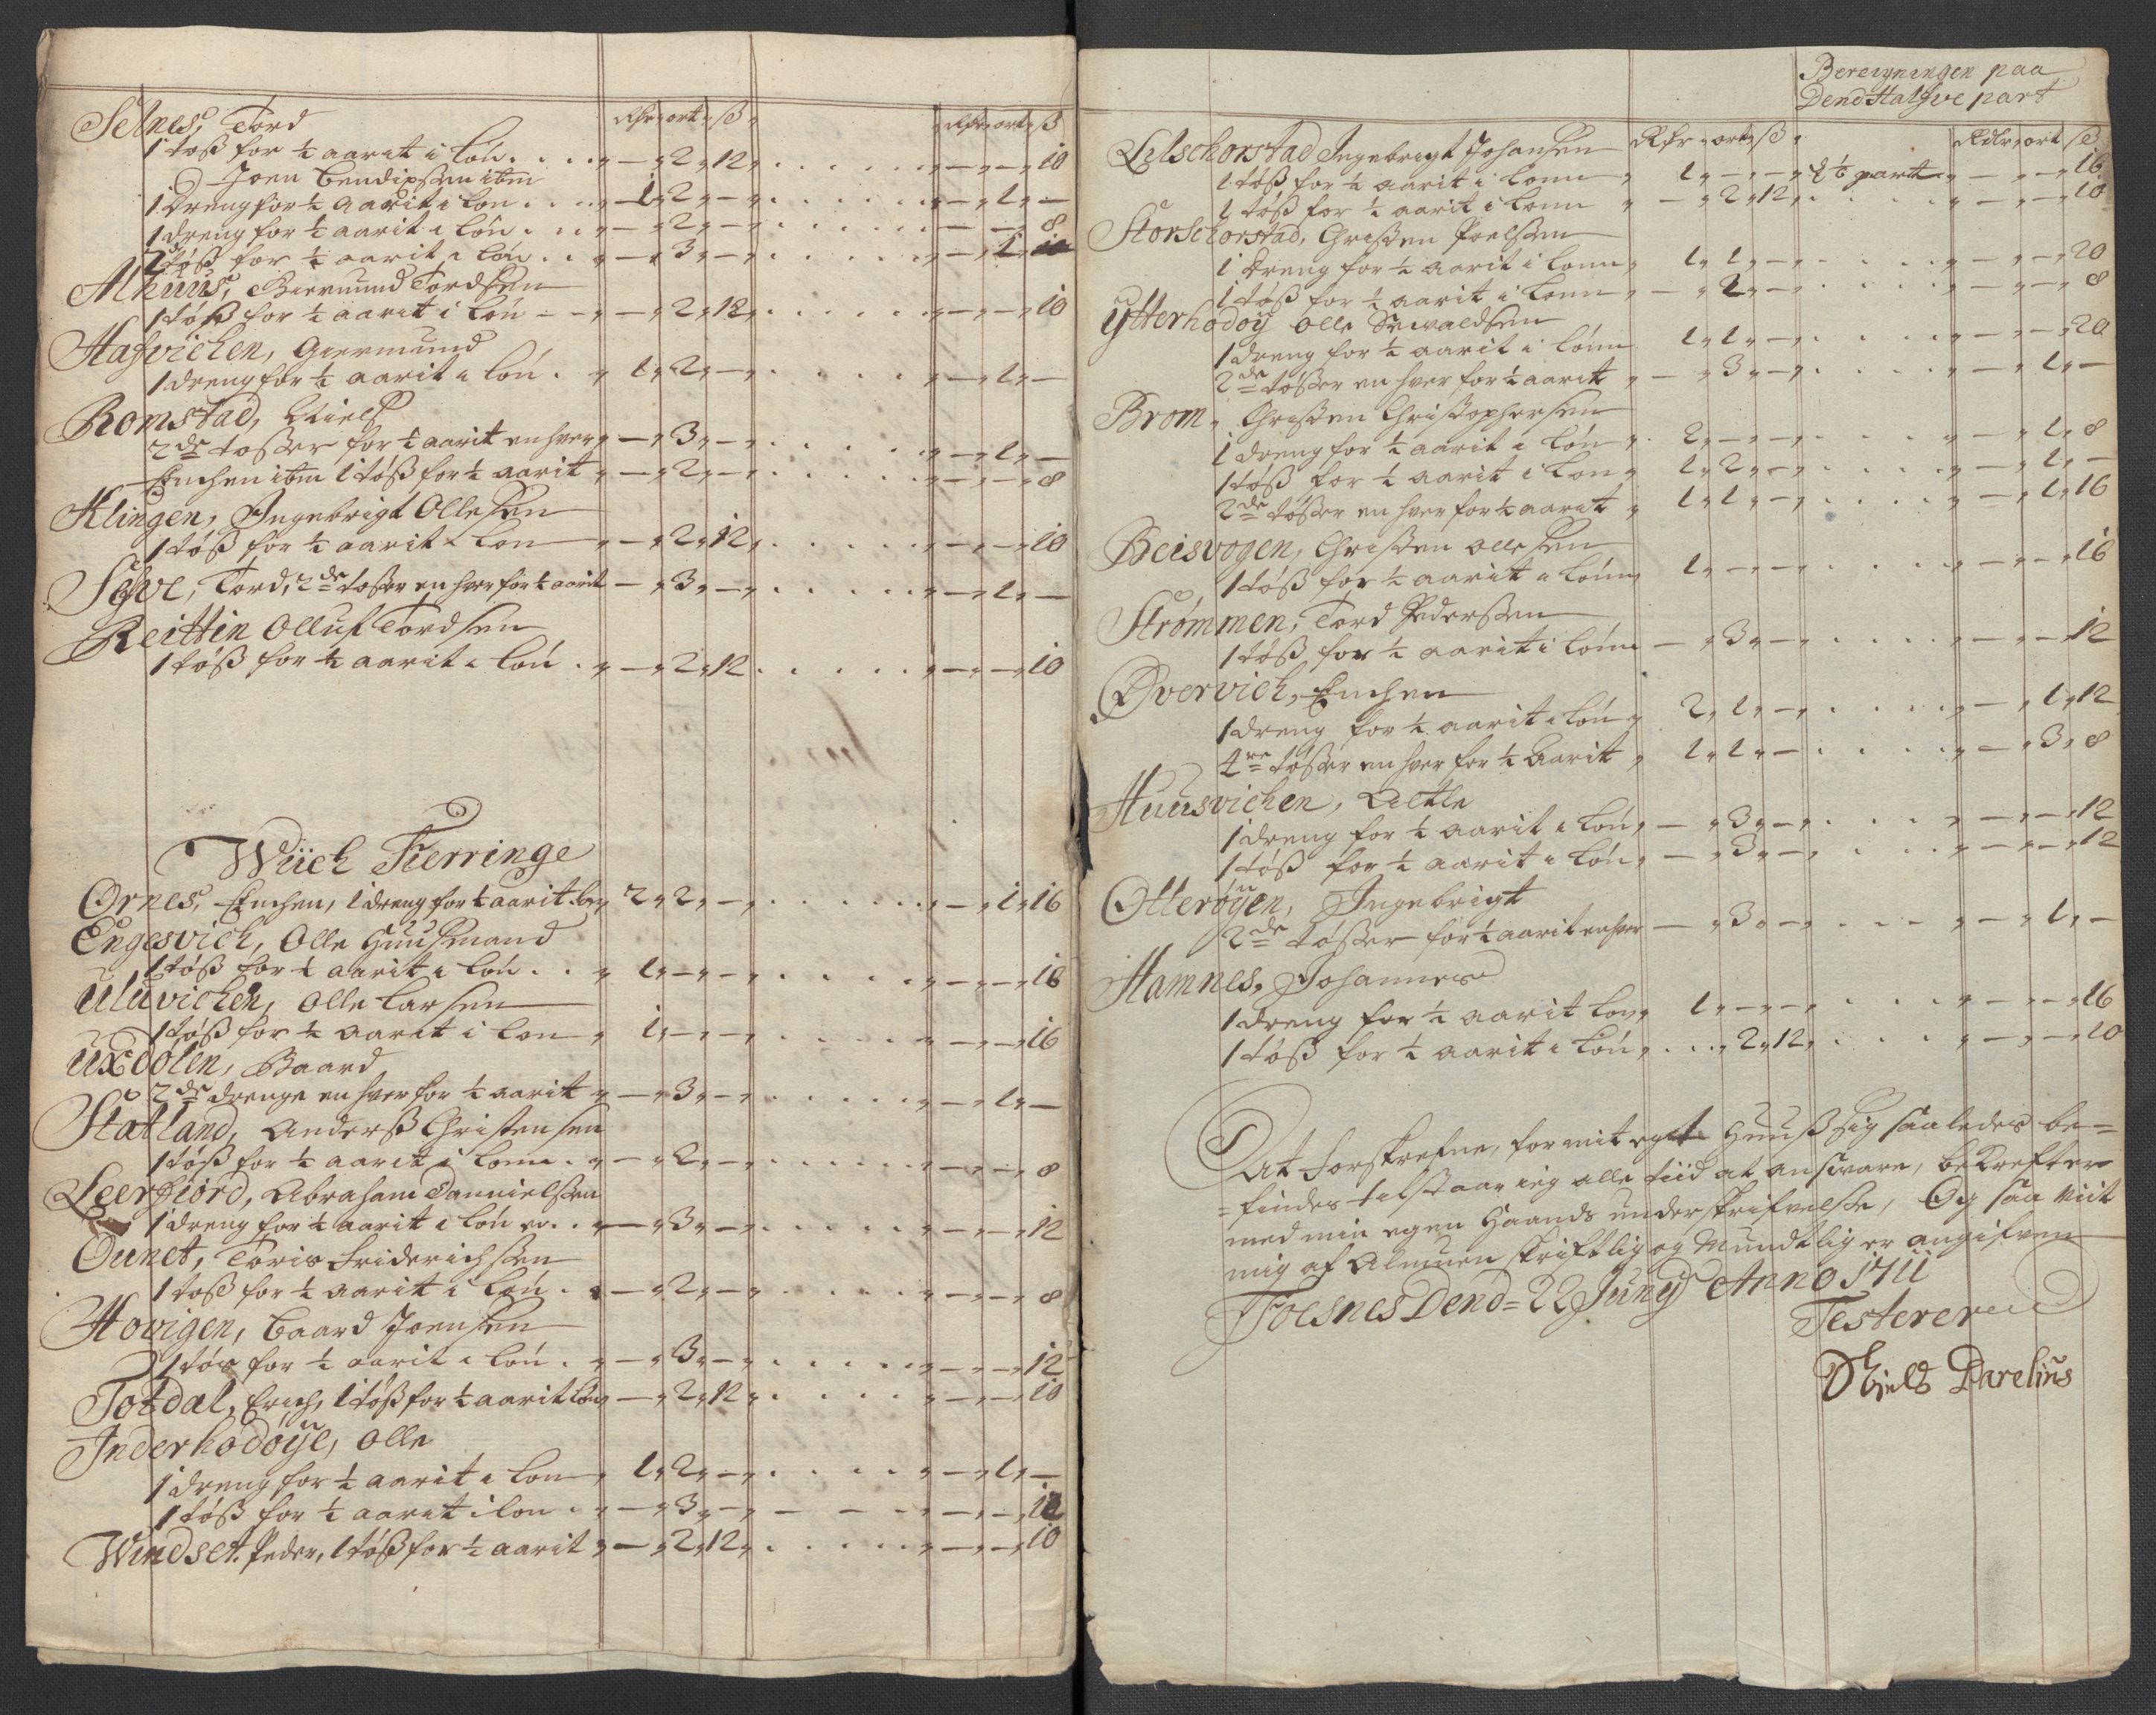 Selnes, Tord Rdr ort ß Rdr ort ß
1 töß for ½ aarit i Lön — 2 12 — — 10
Joen Bendixsen item
1 Dreng for ½ aarit i Lon 1 2 — — 1 —
1 dreng for ½ aarit i Lön — 2 — — — 8
töß for ½ aarit i Lön — 3 —
Alhuus, Giermund Tordsen
1 töß for ½ aarit i Lön — 2 12 — — 10
Hafvichen, Giermund
1 dreng for ½ aarit i Lön 1 2 — — 1 —
Romstad, Niels
2de tösser for ½ aarit en hver — 3 — — 1 —
Enchen itm 1 töß for ½ aarit — 2 — — — 8
Klingen, Ingebrigt Ollesen
1 töß for ½ aarit i Lon — 2 12 — — 10
Tord, 2de tosser en hver for ½ aarit — 3 — — 1 —
Reittin Olluf Tordsen
1 töß for ½ aarit i Lön — 2 12 — — 10
Wiich Fierringe
Ornes, Enchen, 1 dreng for ½ aarit Lön 2 2 — — 1 16
Engesvich, Olle Huusmand
1 töß for ½ aarit i Lön 1 — — — — 16
Uluvichen, Olle Larsen
1 töß for ½ aarit i Lon 1 — — — — 16
Uxdolen, Baard
2de drenge en hver for ½ aarit — 3 — — 1 —
Statland, Anderß Christensen
1 töß for ½ aarit i Lonn — 2 — — — 8
Leerfiord, Abraham Dannielsen
1 dreng for ½ aarit i Lön — 3 — — — 12
Ounet, Toris Friderichsen
1 toß for ½ aarit i Lön — 2 — — — 8
Hovigen, Baard Joensen
1 tös for ½ aarit i Lön — 3 — — — 12
Totdal, Erich, 1 töß for ½ aarit Lön — 2 12 — — 10
Inderhodöÿe, Olle
1 dreng for ½ aarit i Lon 1 2 — — 1 —
1 töß for ½ aarit i lon — 3 — — — 12
Windset. Peder, 1 töß for ½ aarit — 2 12 — — 10
Bereigningen paa
Dend Halfve part
Lilschorstad Ingebrigt Johansen Rdr ort ß Rdlr ort ß
1 töß for ½ aarit i Lonn 1 — — part — — 16
1 töß for ½ aarit i Lonn — 2 12 — — 10
Storschorstad, Christen Poelssen
1 Dreng for ½ aarit i Lonn 1 1 — — — 20
1 töß for ½ aarit i Lonn — 2 — — — 8
Ytterhodoÿ Olle Sewaldsen
1 dreng for ½ aarit i Lönn 1 1 — — — 20
2de tösser en hver for ½ aarit — 3 — — 1 —
Brom, Christen Christophersen
1 dreng for ½ aarit i Lön 2 — — — 1 8
1 töß for ½ aarit i Lon 1 2 — — 1 —
2de tösser en hver for ½ aarit 1 1 — — 1 16
Reisvogen, Christen Ollesen
1 töß for ½ aarit i Lönn 1 — — — — 16
Strømmen, Tord Pederssen
1 töß for ½ aarit i Lönn — 3 — — — 12
Øvervich, Enchen
1 dreng for ½ aarit i Lön 2 1 — — 1 12
4re tösser en hver for ½ aarit 1 1 — — 3 8
Huusvichen,
1 dreng for ½ aarit i Lön — 3 — — — 12
1 töß for ½ aarit i Lön — 3 — — — 12
Otteröÿen, Ingebrigt
2de tösser for ½ aarit en hver — 3 — — 1 —
Hamnes, Johannes
1 dreng for ½ aarit Lon 1 — — — — 16
1 töß for ½ aarit i Lön 2 12 — — 10
At forskrefne, for mit eget Huuß sig saaledes be=
=findes tilstaar ieg alle tiid at answare, bekrefter
med min egen Haands underskrifvelse, Og saa viit
mig af Almuen skriftlig og Mundtlig er angifven
Foesnes Dend 22 Junij Anno 1711
Testerer
Niels Parelius